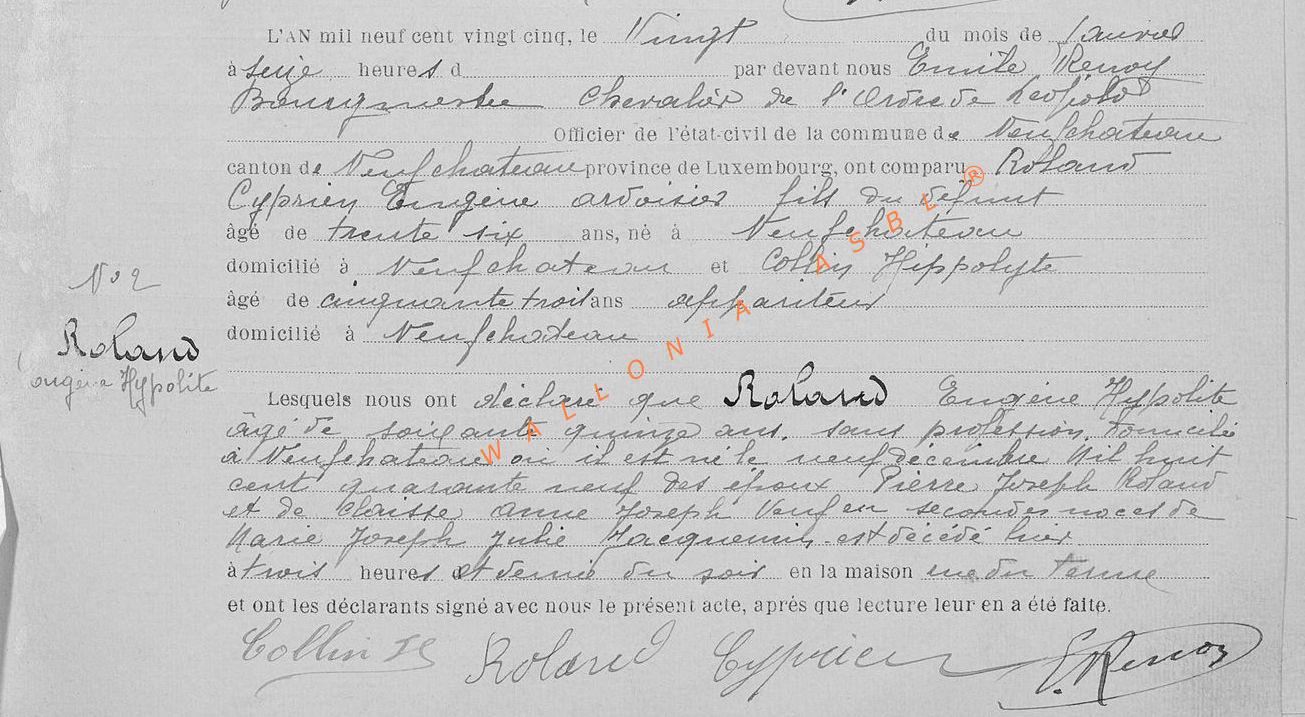 L'AN mil neuf cent vingt cinq, le Vingt du mois de Janvier
à seize heures d par devant nous Emile Renoy
Bourgmestre Chevalier de l'Ordre de Léopold
Officier de l'état-civil de la commune de Neufchateau
canton de Neufchateau province de Luxembourg, ont comparu Roland
Cyprien Eugène ardoisier fils du défunt
âgé de trente six ans, né à Neufchateau
domicilié à Neufchateau et Collin Hippolyte
âgé de cinquante trois ans appariteur
domicilié à Neufchateau
No 2
Roland
Eugène Hypolite
Lesquels nous ont déclaré que Roland Eugène Hypolite
âgé de soixante quinze ans, sans profession, domicilié
à Neufchateau où il est né le neuf décembre Mil huit
cent quarante neuf des époux Pierre Joseph Roland
et de Claisse Anne Joseph Veuf en secondes noces de
Marie Joseph Julie Jacquemin est décédé hier
à trois heures et demie du soir en la maison rue du Terme
et ont les déclarants signé avec nous le présent acte, après que lecture leur en a été faite.
Collin H Roland Cyprien E. Renoy
WALLONIA ASBL ®